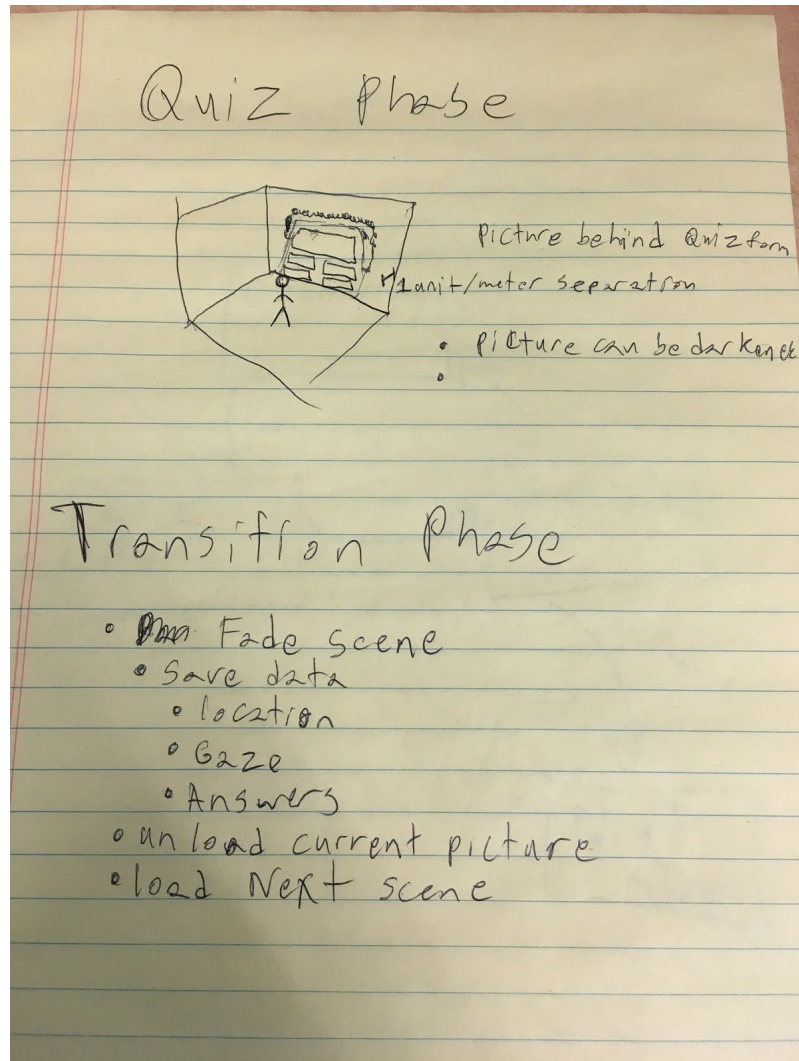 Quiz Phase
Picture behind Quiz form
1 unit/meter separation
• Picture can be darkened
•
Transition Phase
• Fade scene
• Save data
• location
• Gaze
• Answers
• unload current picture
• load Next scene